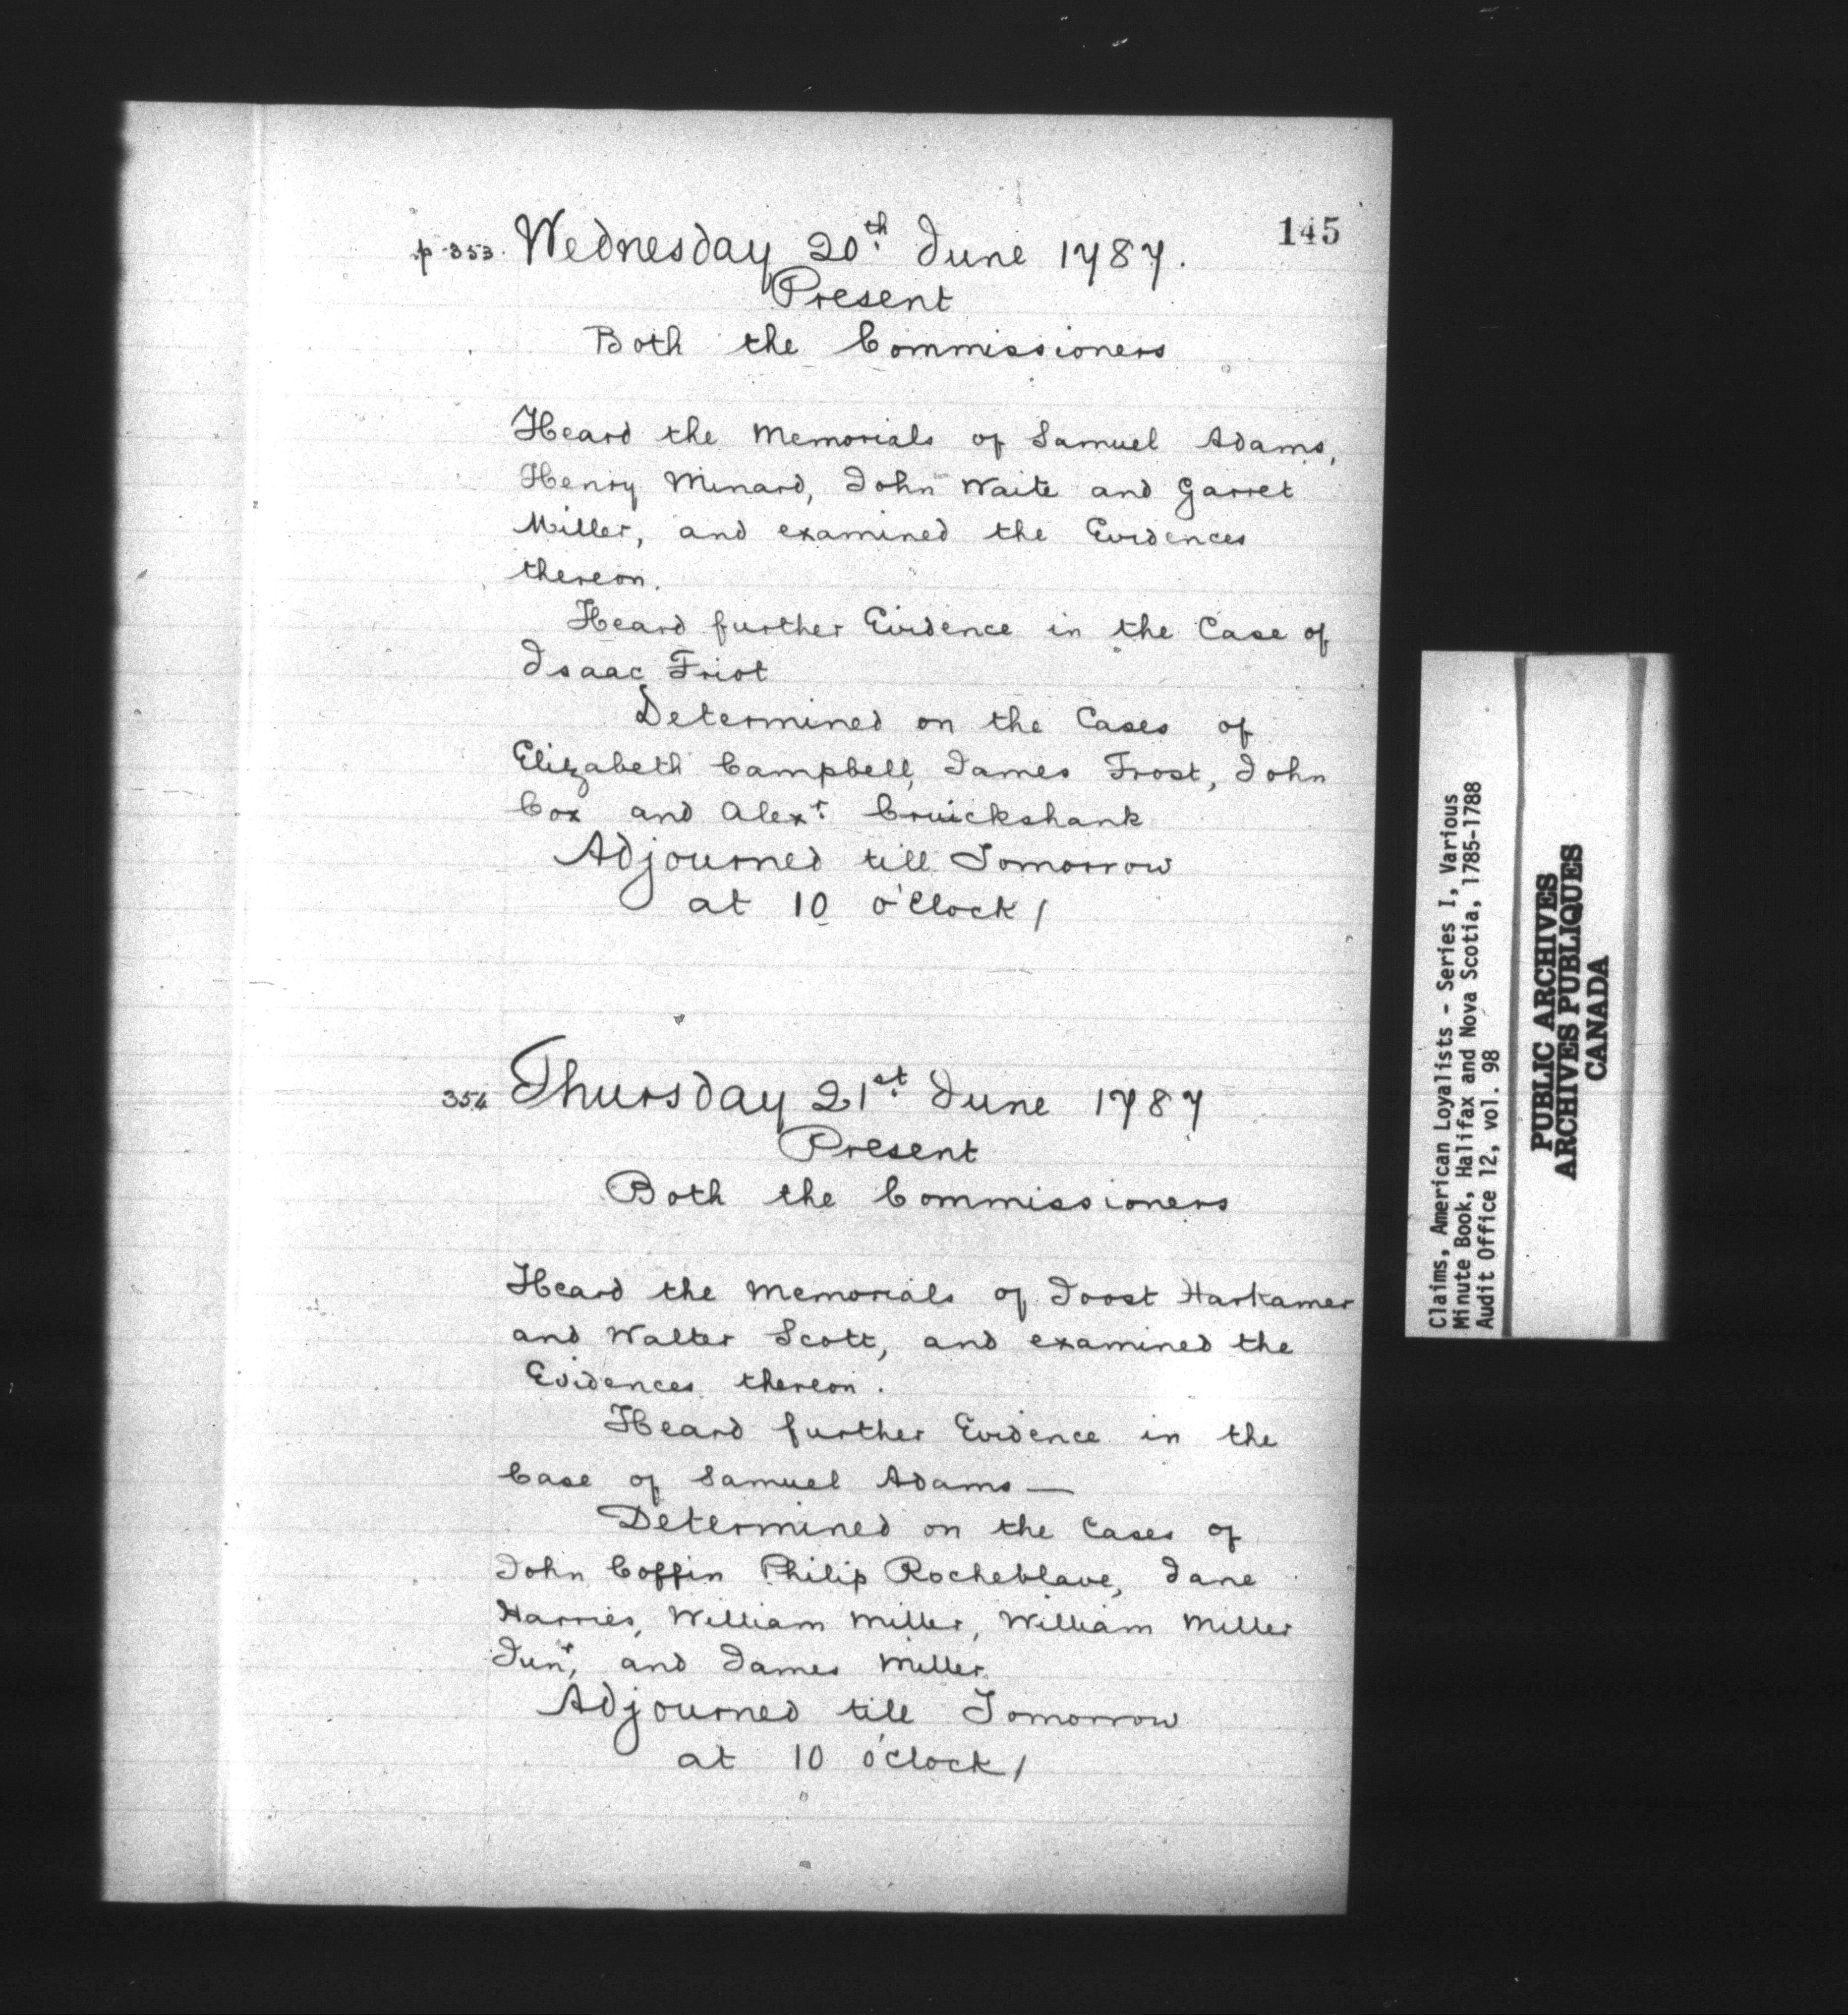 145
p 353. Wednesday 20th June 1787.
Present
Both the Commissioners
Heard the Memorials of Samuel Adams,
Henry Minard, John Waite and Garret
Miller, and examined the Evidences
thereon.
Heard further Evidence in the Case of
Isaac Friot
Determined on the Cases of
Elizabeth Campbell, James Frost, John
Cox and Alexr Cruickshank
Adjourned till Tomorrow
at 10 o'Clock/
354 Thursday 21st June 1787
Present
Both the Commissioners
Heard the Memorials of Joost Harkamer
and Walter Scott, and examined the
Evidences thereon.
Heard further Evidence in the
Case of Samuel Adams—
Determined on the Cases of
John Coffin Philip Rocheblave, Jane
Harries, William Miller, William Miller
Junr, and James Miller
Adjourned till Tomorrow
at 10 o'clock/
Claims, American Loyalists - Series I, Various
Minute Book, Halifax and Nova Scotia, 1785-1788
Audit Office 12, vol. 98
PUBLIC ARCHIVES
ARCHIVES PUBLIQUES
CANADA